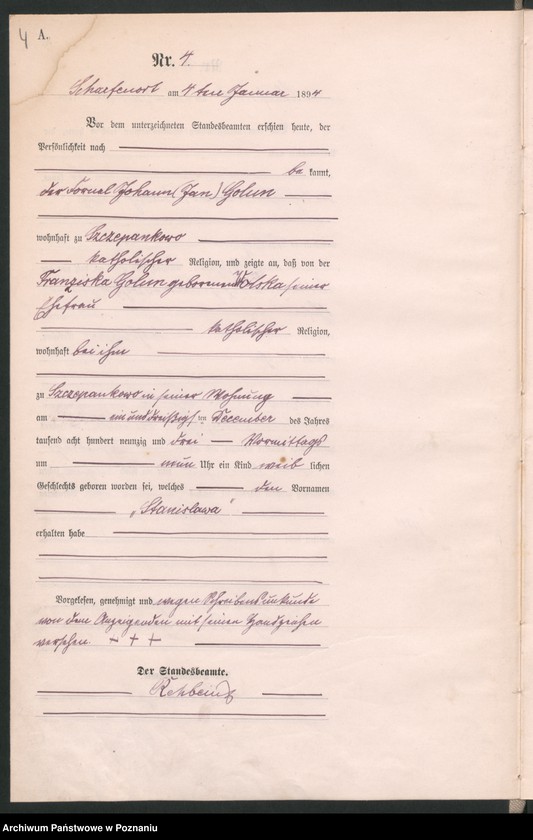 4 A.
Nr. 4.
Scharfenort am 4 ten Januar 1894
Vor dem unterzeichneten Standesbeamten erschien heute, der
Persönlichkeit nach
be kannt,
der Fornal Johann (Jan) Golun
wohnhaft zu Szczepankowo
katholischer Religion, und zeigte an, daß von der
Franziska Golun geborenen Wolska seiner
Ehefrau
katholischer Religion,
wohnhaft bei ihm
zu Szczepankowo in seiner Wohnung
am ein und dreißigsten December des Jahres
tausend acht hundert neunzig und drei Vormittags
um neun Uhr ein Kind weib lichen
Geschlechts geboren worden sei, welches den Vornamen
„Stanislawa"
erhalten habe
Vorgelesen, genehmigt und wegen Schreibensunkunde
von dem Anzeigenden mit seinen Handzeichen
versehen +++
Der Standesbeamte.
Rehbein
Archiwum Państwowe w Poznaniu